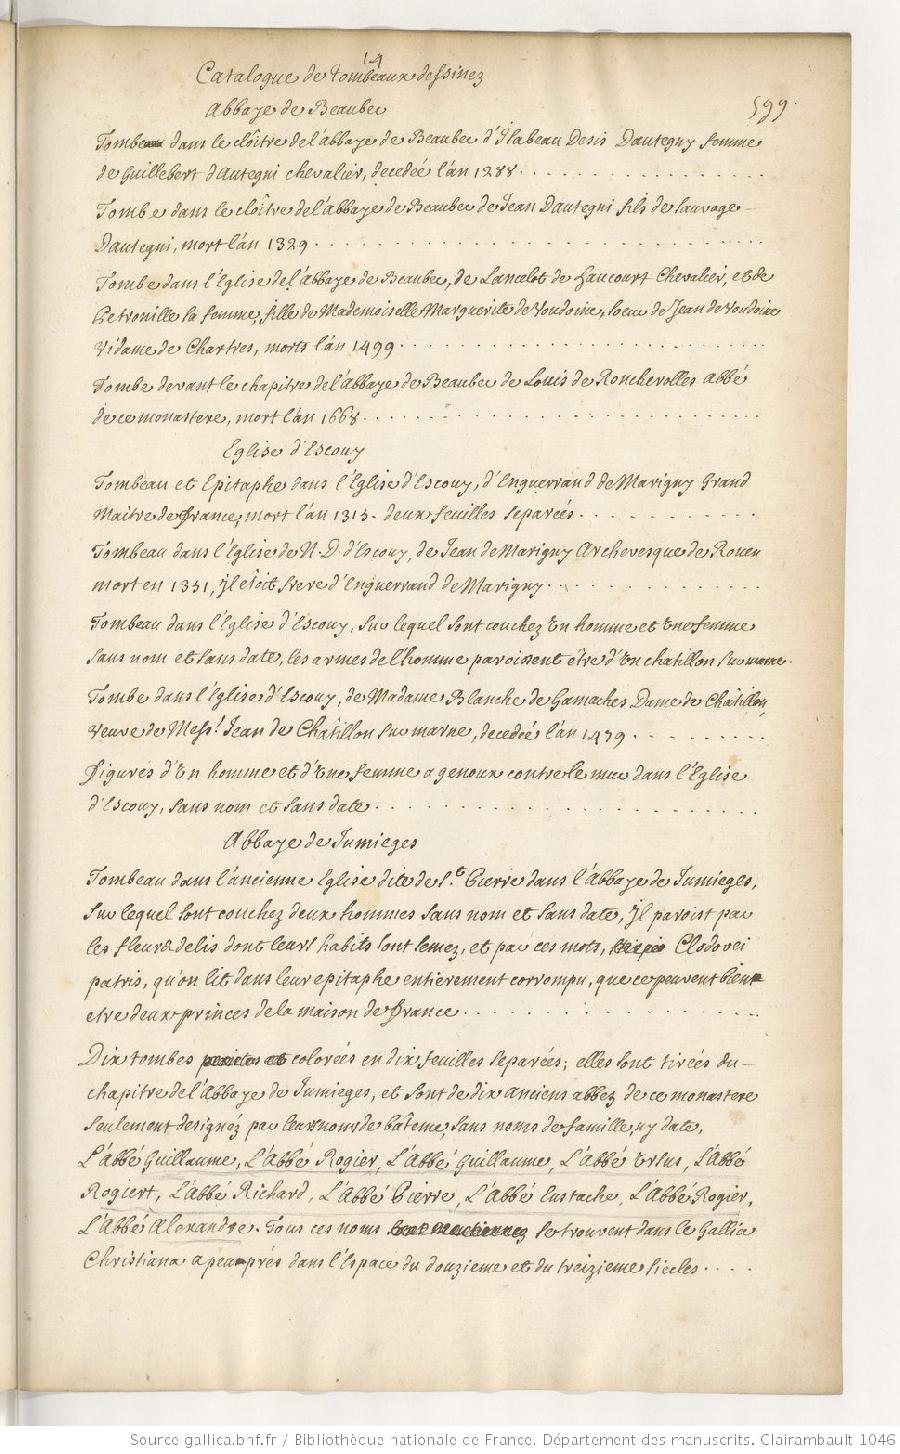 14
Catalogue de tombeaux dessinez
599.
Abbaye de Beaubec
Tombeau dans le clôitre de l'abbaye de Beaubec d'Ilabeau Desis Dautegny femme
de Guillebert dautegni chevalier, decedée l'an 1288.
Tombe dans le cloître de l'abbaye de Beaubec de Jean Dautegni fils de Sauvage
Dautegni, mort l'an 1329.
Tombe dans l'Eglise de l'Abbaye de Beaubec, de Lancelot de haucourt Chevalier, et de
Petronille sa femme, fille de Mademoiselle Marguerite de Vendoine, soeur de Jean de Vendoine
Vidame de Chartres, morts l'an 1499.
Tombe devant le chapitre de l'Abbaye de Beaubec de Louis de Roncherolles abbé
de ce monastere, mort l'an 1668.
Eglise d'Escouy
Tombeau et Epitaphe dans l'Eglise d'Escouy, d'Enguerrand de Marigny Grand
Maitre de france, mort l'an 1315. deux feuilles separées.
Tombeau dans l'Eglise de N. D. d'Escouy, de Jean de Marigny Archevesque de Rouen
mort en 1351, il étoit frere d'Enguerrand de Marigny.
Tombeau dans l'Eglise d'Escouy, sur lequel sont couchez un homme et une femme
sans nom et sans date, les armes de l'homme paroissent être d'un chatillon sur marne.
Tombe dans l'Eglise d'Escouy, de Madame Blanche de Gamaches Dame de Châtillon,
veuve de Messr. Jean de Châtillon sur marne, decedée l'an 1479.
figures d'un homme et d'une femme a genoux contre le mur dans l'Eglise
d'Escouy, sans nom et sans date.
Abbaye de Jumieges
Tombeau dans l'ancienne Eglise dite de St. Pierre dans l'Abbaye de Jumieges,
sur lequel sont couchez deux hommes sans nom et sans date, il paroist par
les fleurs de lis dont leurs habits sont semez, et par ces mots, Clodovei
patris, qu'on lit dans leur epitaphe entierement corrompu, que ce peuvent bien
etre deux princes de la maison de france.
Dix tombes colorées en dix feuilles separées; elles sont tirées du
chapitre de l'Abbaye de Jumieges, et sont de dix anciens abbez de ce monastere
seulement designéz par leurs noms de bâteme, sans noms de famille, ny date,
L'abbé Guillaume, L'abbé Rogier, L'abbé Guillaume, L'abbé Ursus, L'abbé
Rogiert, L'abbé Richard, L'abbé Pierre, L'abbé Eustache, L'abbé Rogier,
L'abbé Alexandre. Tous ces noms se trouvent dans le Gallia
Christiana a peu près dans l'Espace du douzieme et du treizieme siecles.
Source gallica.bnf.fr / Bibliothèque nationale de France. Département des manuscrits. Clairambault 1046